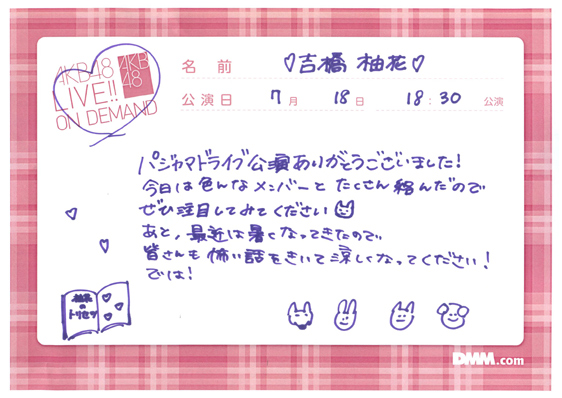 AKB48
LIVE!!
ON DEMAND
AKB
48
名前 ♡吉橋 柚花♡
公演日 7月 18日 18:30 公演
パジャマドライブ公演ありがとうございました!
今日は色んなメンバーとたくさん絡んだので
ぜひ注目してみてください
あと、最近は暑くなってきたので
皆さんも怖い話をきいて涼しくなってください!
では!
の
トリセツ
DMM.com